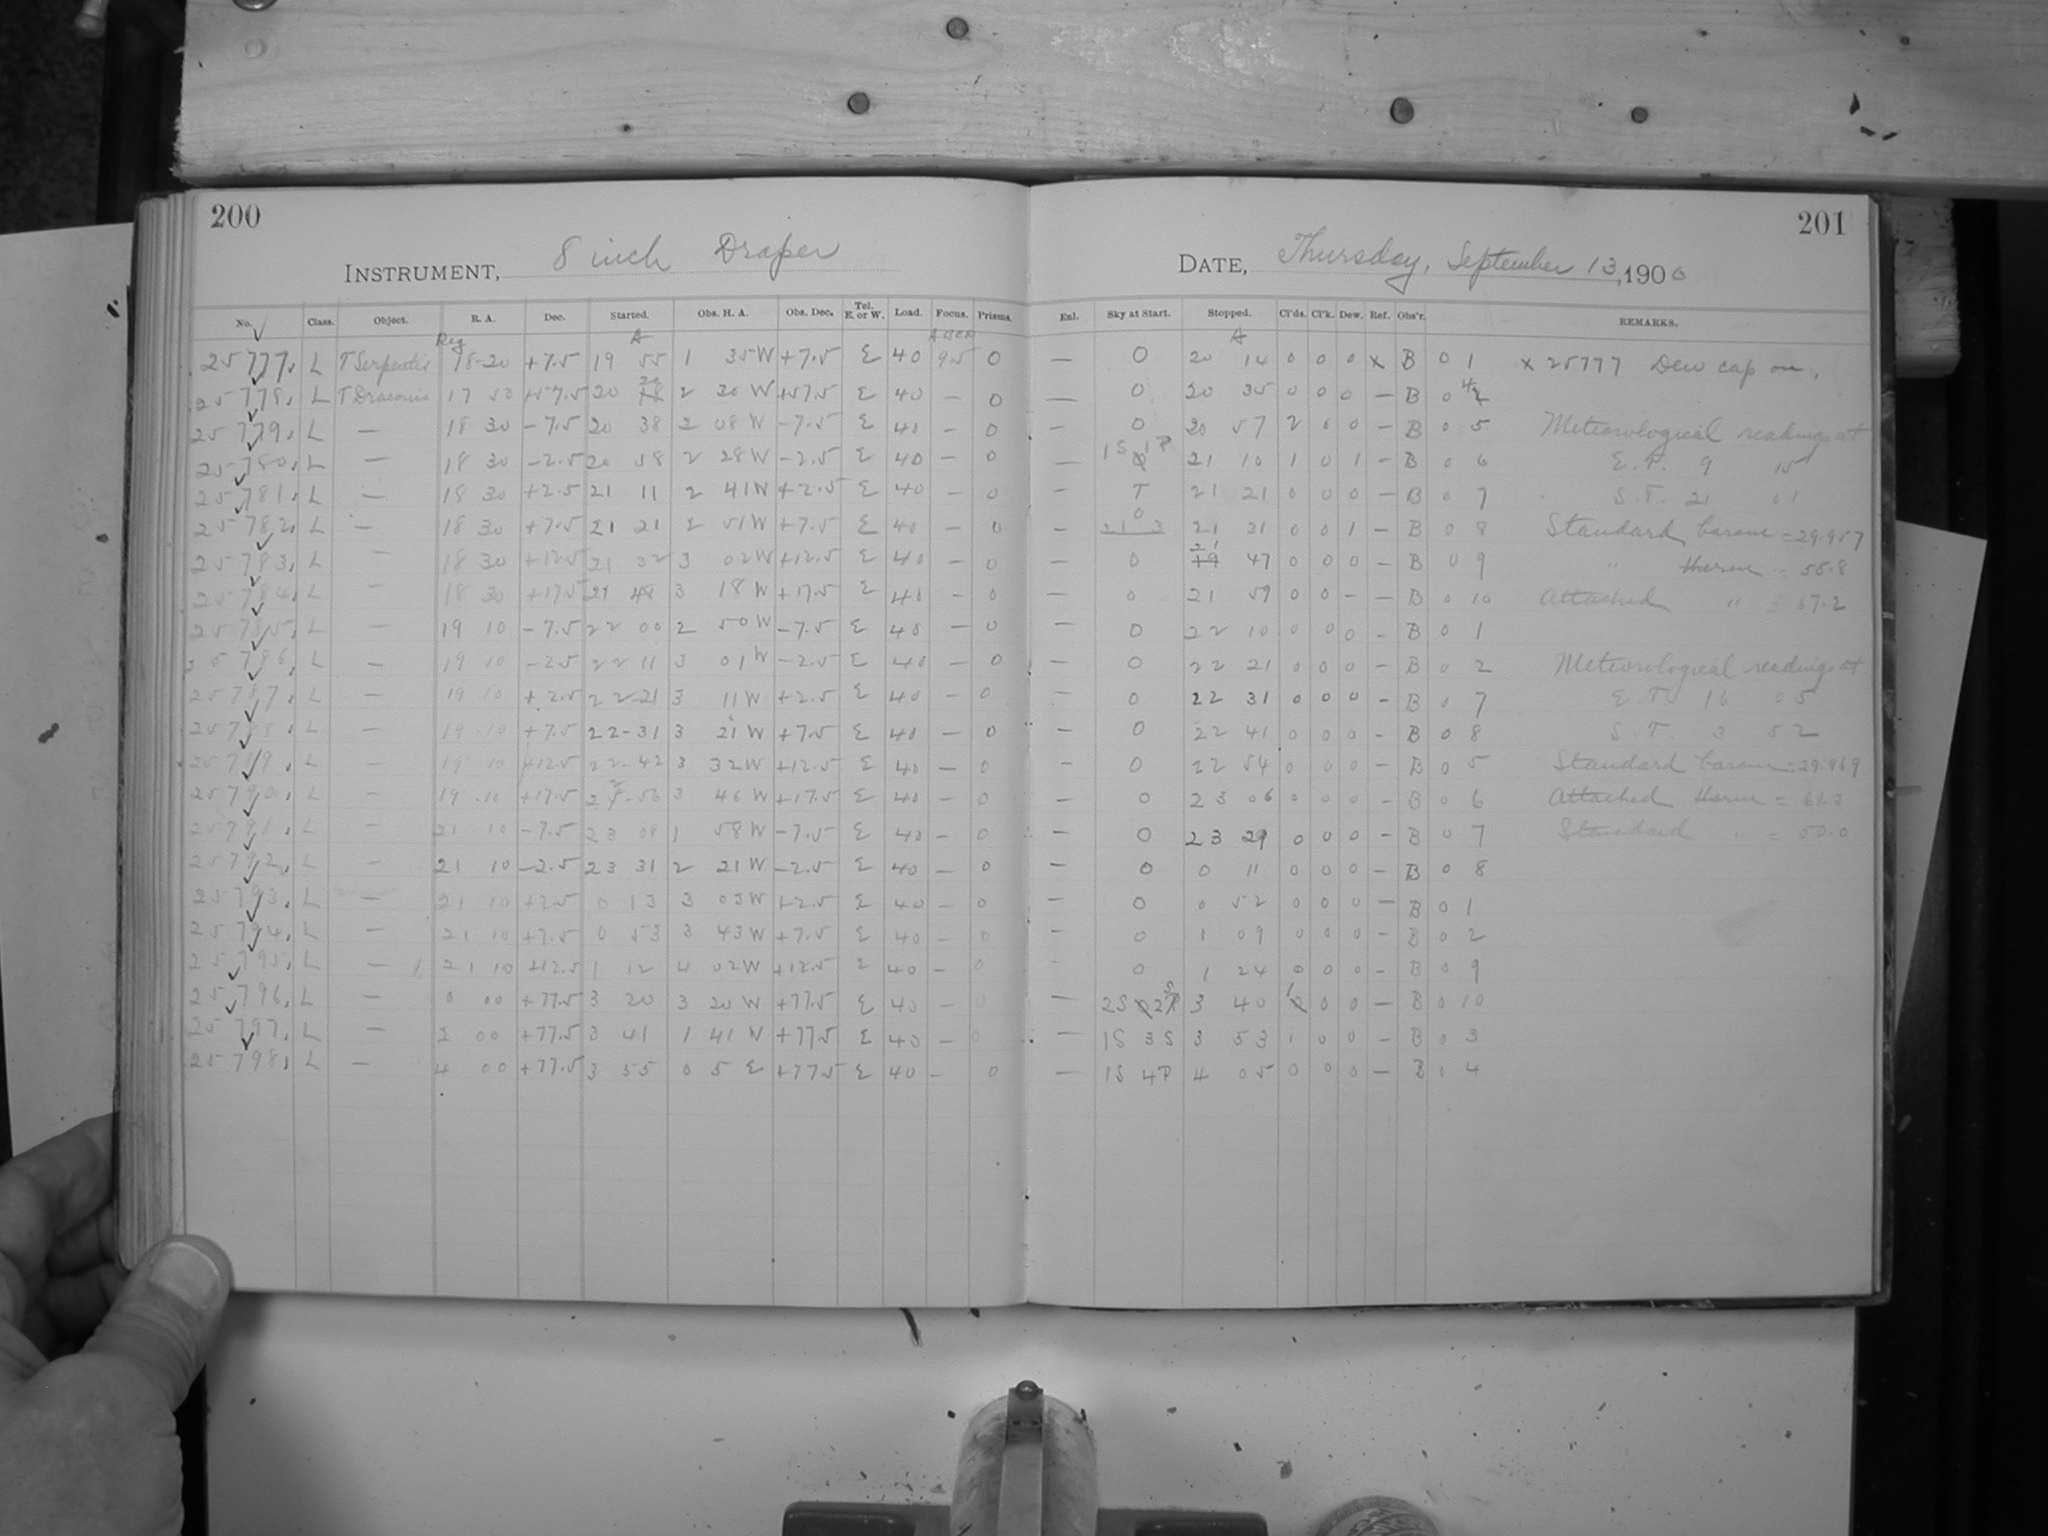 200
201
INSTRUMENT, 8 inch Draper
DATE, Thursday, September 13, 1900
No. Class. Object. R. A. Dec. Started. Obs. H. A. Obs. Dec. Tel. E. or W. Load. Focus. Prisms. Enl. Sky at Start. Stopped. Cl'ds. Cl'k. Dew. Ref. Obs'r. REMARKS.
Reg A A
25777, L T Serpentis 18-20 +7.5 19 55 1 35 W +7.5 E 40 9.5 0 — 0 20 14 0 0 0 x B 0 1 x 25777 Dew cap on.
25778, L T Draconis 17 50 +57.5 20 18 20 2 30 W +57.5 E 40 — 0 — 0 20 35 0 0 0 — B 0 4
25779, L — 18 30 -7.5 20 38 2 08 W -7.5 E 40 — 0 — 0 20 57 2 0 0 — B 0 5 Meteorological readings at
25780, L — 18 30 -2.5 20 58 2 28 W -2.5 E 40 — 0 — 1S 1P 21 10 1 0 1 — B 0 6 E.T. 9 15
25781, L — 18 30 +2.5 21 11 2 41 W +2.5 E 40 — 0 — T 21 21 0 0 0 — B 0 7 S.T. 21 01
25782, L — 18 30 +7.5 21 21 2 51 W +7.5 E 40 — 0 — 0 21 31 0 0 1 — B 0 8 Standard barom = 29.957
25783, L — 18 30 +12.5 21 32 3 02 W +12.5 E 40 — 0 — 0 19 21 47 0 0 0 — B 0 9 " therm = 55.8
25784, L — 18 30 +17.5 21 48 3 18 W +17.5 E 40 — 0 — 0 21 59 0 0 — — B 0 10 Attached " = 67.2
25785, L — 19 10 -7.5 22 00 2 50 W -7.5 E 40 — 0 — 0 22 10 0 0 0 — B 0 1
25786, L — 19 10 -2.5 22 11 3 01 W -2.5 E 40 — 0 — 0 22 21 0 0 0 — B 0 2 Meteorological readings at
25787, L — 19 10 +2.5 22-21 3 11 W +2.5 E 40 — 0 — 0 22 31 0 0 0 — B 0 7 E.T. 16 05
25788, L — 19 10 +7.5 22-31 3 21 W +7.5 E 40 — 0 — 0 22 41 0 0 0 — B 0 8 S.T. 3 52
25789, L — 19 10 +12.5 22-42 3 32 W +12.5 E 40 — 0 — 0 22 54 0 0 0 — B 0 5 Standard barom = 29.969
25790, L — 19 10 +17.5 22-56 3 46 W +17.5 E 40 — 0 — 0 23 06 0 0 0 — B 0 6 Attached therm =
25791, L — 21 10 -7.5 23 08 1 58 W -7.5 E 40 — 0 — 0 23 29 0 0 0 — B 0 7 Standard " = 50.0
25792, L — 21 10 -2.5 23 31 2 21 W -2.5 E 40 — 0 — 0 0 11 0 0 0 — B 0 8
25793, L — 21 10 +2.5 0 13 3 03 W +2.5 E 40 — 0 — 0 0 52 0 0 0 — B 0 1
25794, L — 21 10 +7.5 0 53 3 43 W +7.5 E 40 — 0 — 0 1 09 0 0 0 — B 0 2
25795, L — 21 10 +12.5 1 12 4 02 W +12.5 E 40 — 0 — 0 1 24 0 0 0 — B 0 9
25796, L — 0 00 +77.5 3 20 3 20 W +77.5 E 40 — 0 — 2S 2S 3 40 1 0 0 — B 0 10
25797, L — 2 00 +77.5 3 41 1 41 W +77.5 E 40 — 0 — 1S 3S 3 53 1 0 0 — B 0 3
25798, L — 4 00 +77.5 3 55 0 5 E +77.5 E 40 — 0 — 1S 4P 4 05 0 0 0 — B 0 4